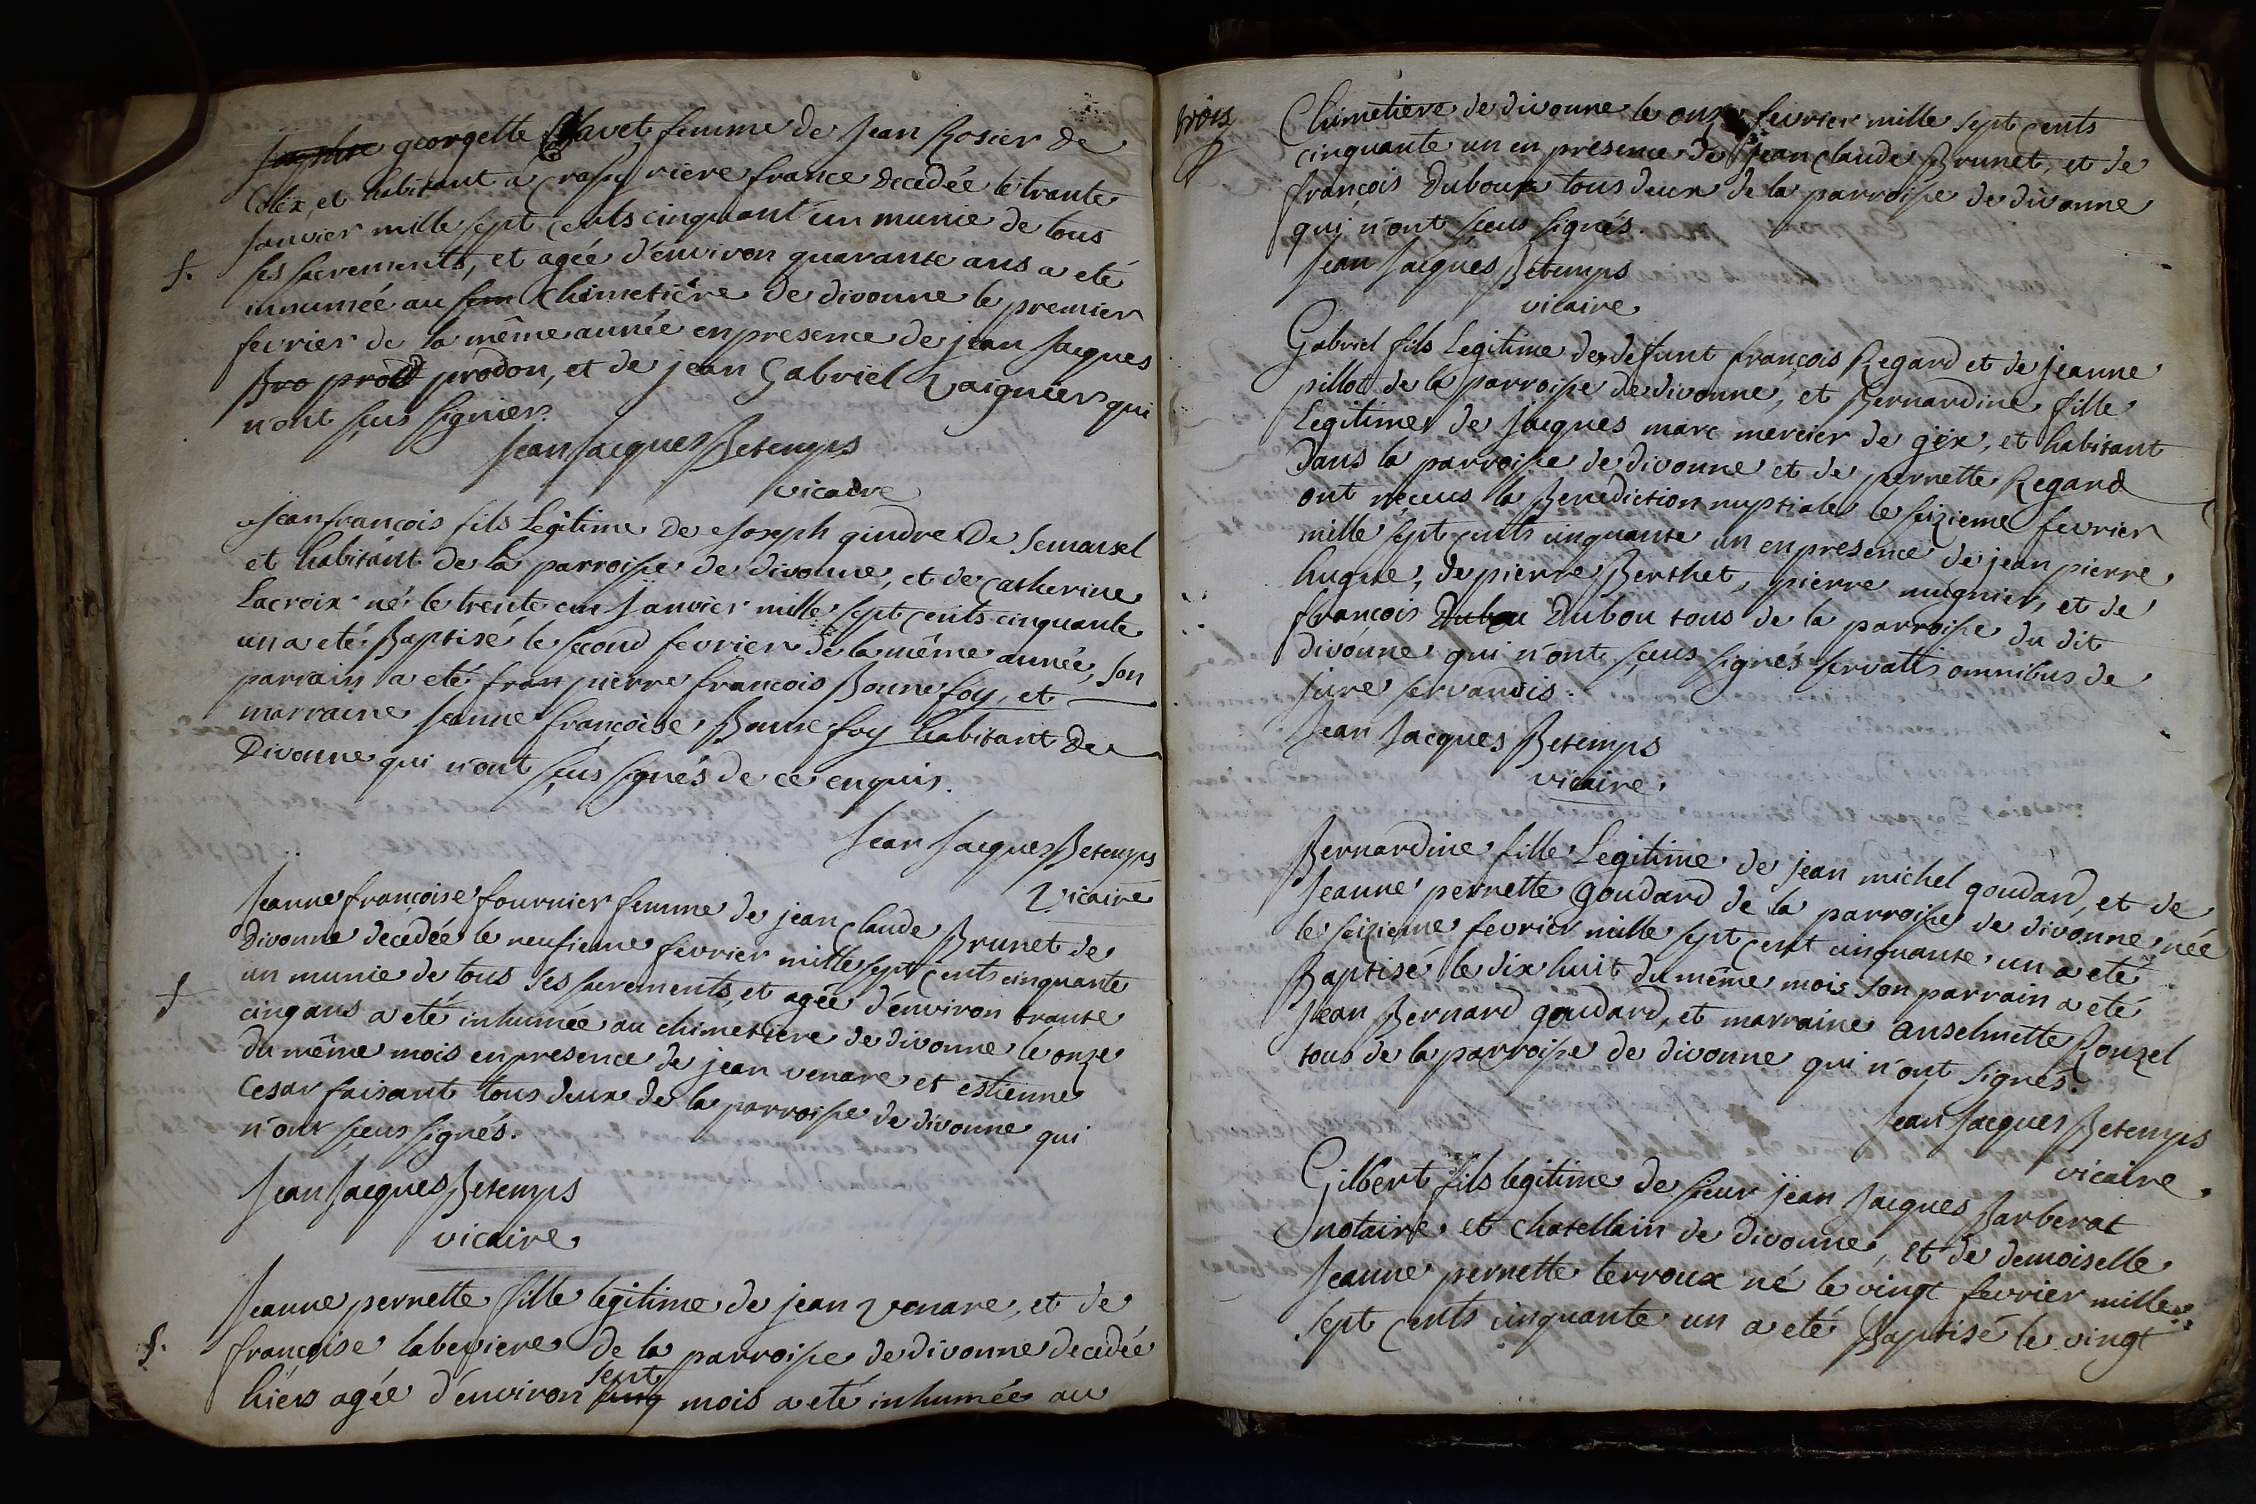 georgette Chavet femme de Jean Rosier de
Colex, et habitant a Crassy riere france decedée le trante
Janvier mille sept cents cinquant'un munie de tous
ses sacrements, et agée d'environ quarante ans a eté
S.
inhumée au Chimetière de divonne le premier
fevrier de la même année en presence de jean Jacques
prodon, et de jean Gabriel vaignier qui
n'ont sçus signier.
Jean Jacques Betemps
vicaire
Jean françois fils Legitime De Joseph gindre De Semaisel
et habitant de la parroisse de divonne, et de Catherine
Lacroix né le trente un Janvier mille sept cents cinquante
un a eté Baptisé le second fevrier de la même année, son
parrain a eté fran pierre françois Bonnefoy, et
marraine Jeanne françoise Bonnefoy habitant De
Divonne qui n'ont sçus signés de ce enquis.
Jean Jacques Betemps
vicaire
Jeanne françoise fournier femme de jean Claude Brunet de
Divonne decédée le neufieme fevrier mille sept cents cinquante
un munie de tous ses sacrements, et agée d'environ trante
S
cinq ans a eté inhumée au chimetiere de divonne le onze
du même mois en presence de jean venare et estienne
Cesar faisant tous deux de la parroisse de divonne qui
n'ont sçeus signés.
Jean Jacques Betemps
vicaire
Jeanne pernette fille legitime de jean venare, et de
françoise labeviere de la parroisse de divonne decedée
S.
hiérs agée d'environ sept mois a eté inhumée au
trois
Chimetière de divonne le onze fevrier mille sept cents
cinquante un en presence de jean Claude Brunet, et de
françois Duboux tous deux de la parroisse de divonne
qui n'ont sçeus signés.
Jean Jacques Betemps
vicaire
Gabriel fils Legitime de defunt françois Regard et de jeanne
pillot de la parroisse de divonne, et Bernardine fille
Legitime de Jacques marc mercier de géx, et habitant
dans la parroisse de divonne et de pernette Regard
ont reçeus la Benediction nuptiale le seizieme fevrier
mille sept cents cinquante un en presence de jean pierre
hugue, de pierre Berthet, pierre mugnier, et de
françois Dubou Dubou tous de la parroisse du dit
divonne qui n'ont sçeus signés servatis omnibus de
jure servandis.
Jean Jacques Betemps
vicaire.
Bernardine fille Legitime de jean michel goudard, et de
Jeanne pernette Goudard de la parroisse de divonne née
le seizieme fevrier mille sept cent cinquante un a eté
Baptisé le dix huit du même mois son parrain a eté
Jean Bernard goudard, et marraine anselmette Rouzel
tous de la parroisse de divonne qui n'ont signés.
Jean Jacques Betemps
vicaire.
Gilbert fils legitime de sieur jean Jacques Barberat
notaire et chatellain de divonne, et de demoiselle
Jeanne pernette terroux né le vingt fevrier mille
sept cents cinquante un a eté Baptisé le vingt